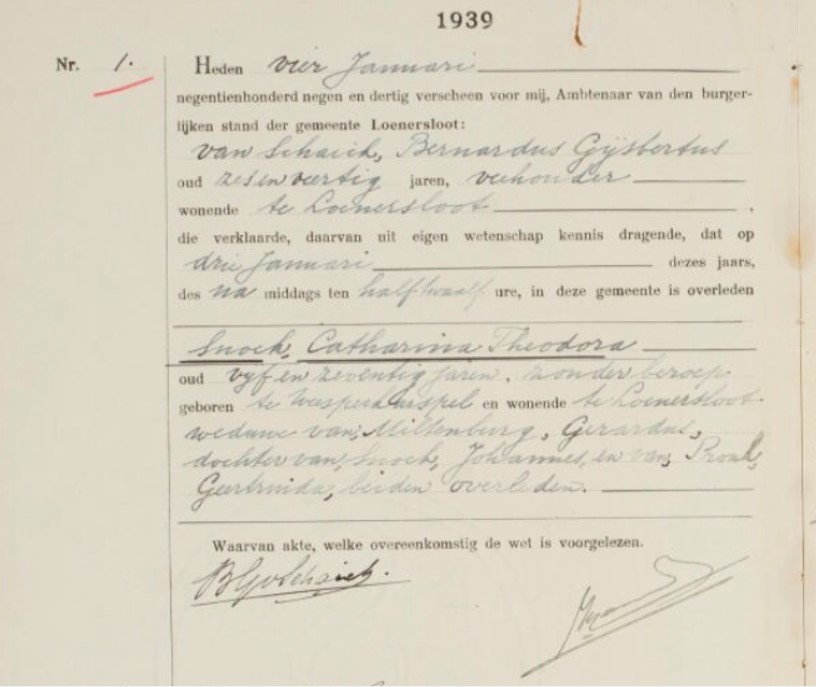 1939
Nr. 1.
Heden vier Januari
negentienhonderd negen en dertig verscheen voor mij, Ambtenaar van den burger-
lijken stand der gemeente Loenersloot:
van Schaick, Bernardus Gijsbertus
oud zesenveertig jaren, veehouder
wonende te Loenersloot,
die verklaarde, daarvan uit eigen wetenschap kennis dragende, dat op
drie Januari dezes jaars,
des na middags ten half twaalf ure, in deze gemeente is overleden
Snoek, Catharina Theodora
oud vijf en zeventig jaren, zonder beroep
geboren te Weesperkarspel en wonende te Loenersloot
weduwe van, Miltenburg, Gerardus,
dochter van, Snoek, Johannes, en van, Pronk,
Geertruida, beiden overleden.
Waarvan akte, welke overeenkomstig de wet is voorgelezen.
BGvSchaick.